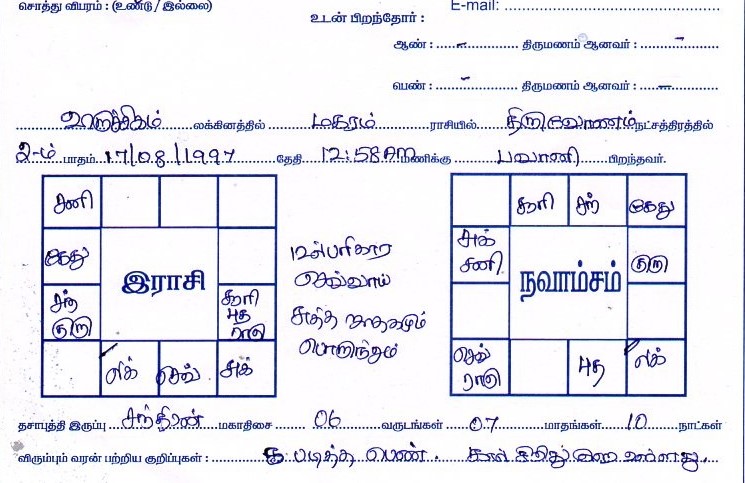 சொத்து விபரம் : (உண்டு / இல்லை)
E-mail:
உடன் பிறந்தோர் :
ஆண் : - திருமணம் ஆனவர் : -
பெண் : - திருமணம் ஆனவர் : -
லக்கினத்தில் மகரம் ராசியில் திருவோணம் நட்சத்திரத்தில்
2-ம் பாதம் 17/08/1997 தேதி 12:58 AM மணிக்கு பவானி பிறந்தவர்.
சனி
கேது
சந் குரு
இராசி
சூரி புத ராகு
லக் செவ் சுக்
செவ்வாய்
சுத்த ஜாதகமும்
சூரி சந் கேது
சுக் சனி
நவாம்சம்
குரு
செவ் ராகு
புத லக்
தசாபுத்தி இருப்பு சந்திரன் மகாதிசை 06 வருடங்கள் 07 மாதங்கள் 10 நாட்கள்
விரும்பும் வரன் பற்றிய குறிப்புகள் : படித்த பெண். கால் சிறிது குறை உள்ளது.